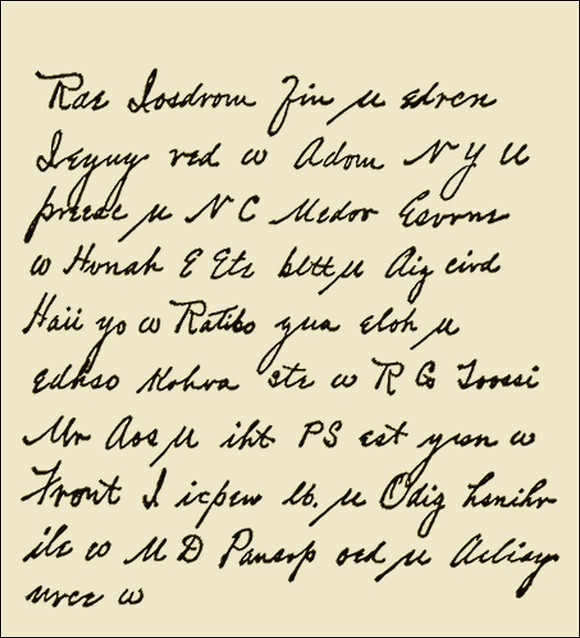 Rae Iosdrom Jin u edren
Ieyuy red w Adom N Y U
u N C Medor Esvrns
w Hvnah E Ete bltt u Aig civd
Haii yo w Ratibo yua eloh u
edhso Mohva ste w R Co Toossi
Mr Aos U iht PS est yusn w
Front I icpew lb. u Odig hsnihr
ile w M D Pansrp oed u
w